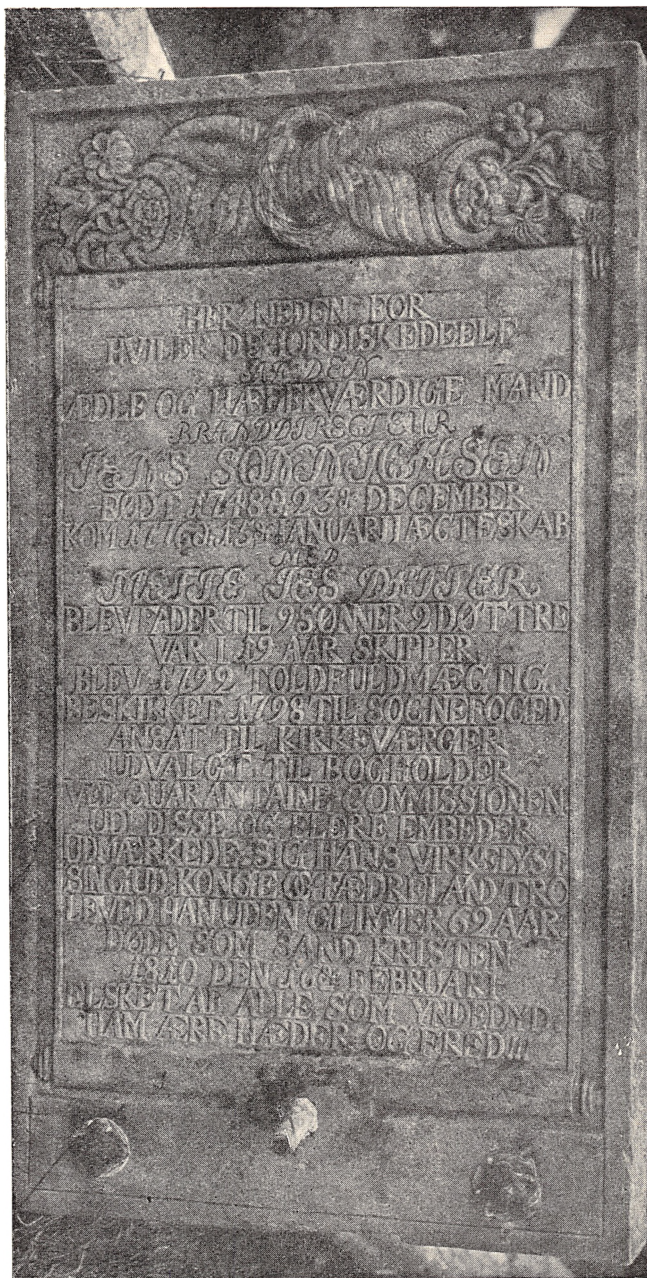 HER NEDEN FOR
HVILER DE JORDISKE DEELE
AF DEN
ÆDLE OG HÆDERVÆRDIGE MAND
BRANDDIRECTEUR
JENS SØNNICHSEN
FØDT 1748 D 23& DECEMBER
KOM 1776 D 15& IANUAR I ÆGTESKAB
MED
METTE JES DATTER
BLEV FADER TIL 9 SØNNER 2 DØTTRE
VAR I 19 AAR SKIPPER
BLEV 1792 TOLDFULDMÆGTIG
BESKIKKET 1798 TIL SOGNEFOGED
ANSAT TIL KIRKEVÆRGER
UDVALGT TIL BOGHOLDER
VED QUARANTAINE COMMISSIONEN
UDI DISSE OG FLERE EMBEDER
UDMÆRKEDE SIG HANS VIRKELYST
SIN GUD KONGE OG FÆDRELAND TRO
LEVED HAN UDEN GLIMMER 62 AAR
DØDE SOM SAND KRISTEN
1810 DEN 16& FEBRUARI
ELSKET AF ALLE SOM YNDE DYD
HAM ÆRE HÆDER OG FRED!!!